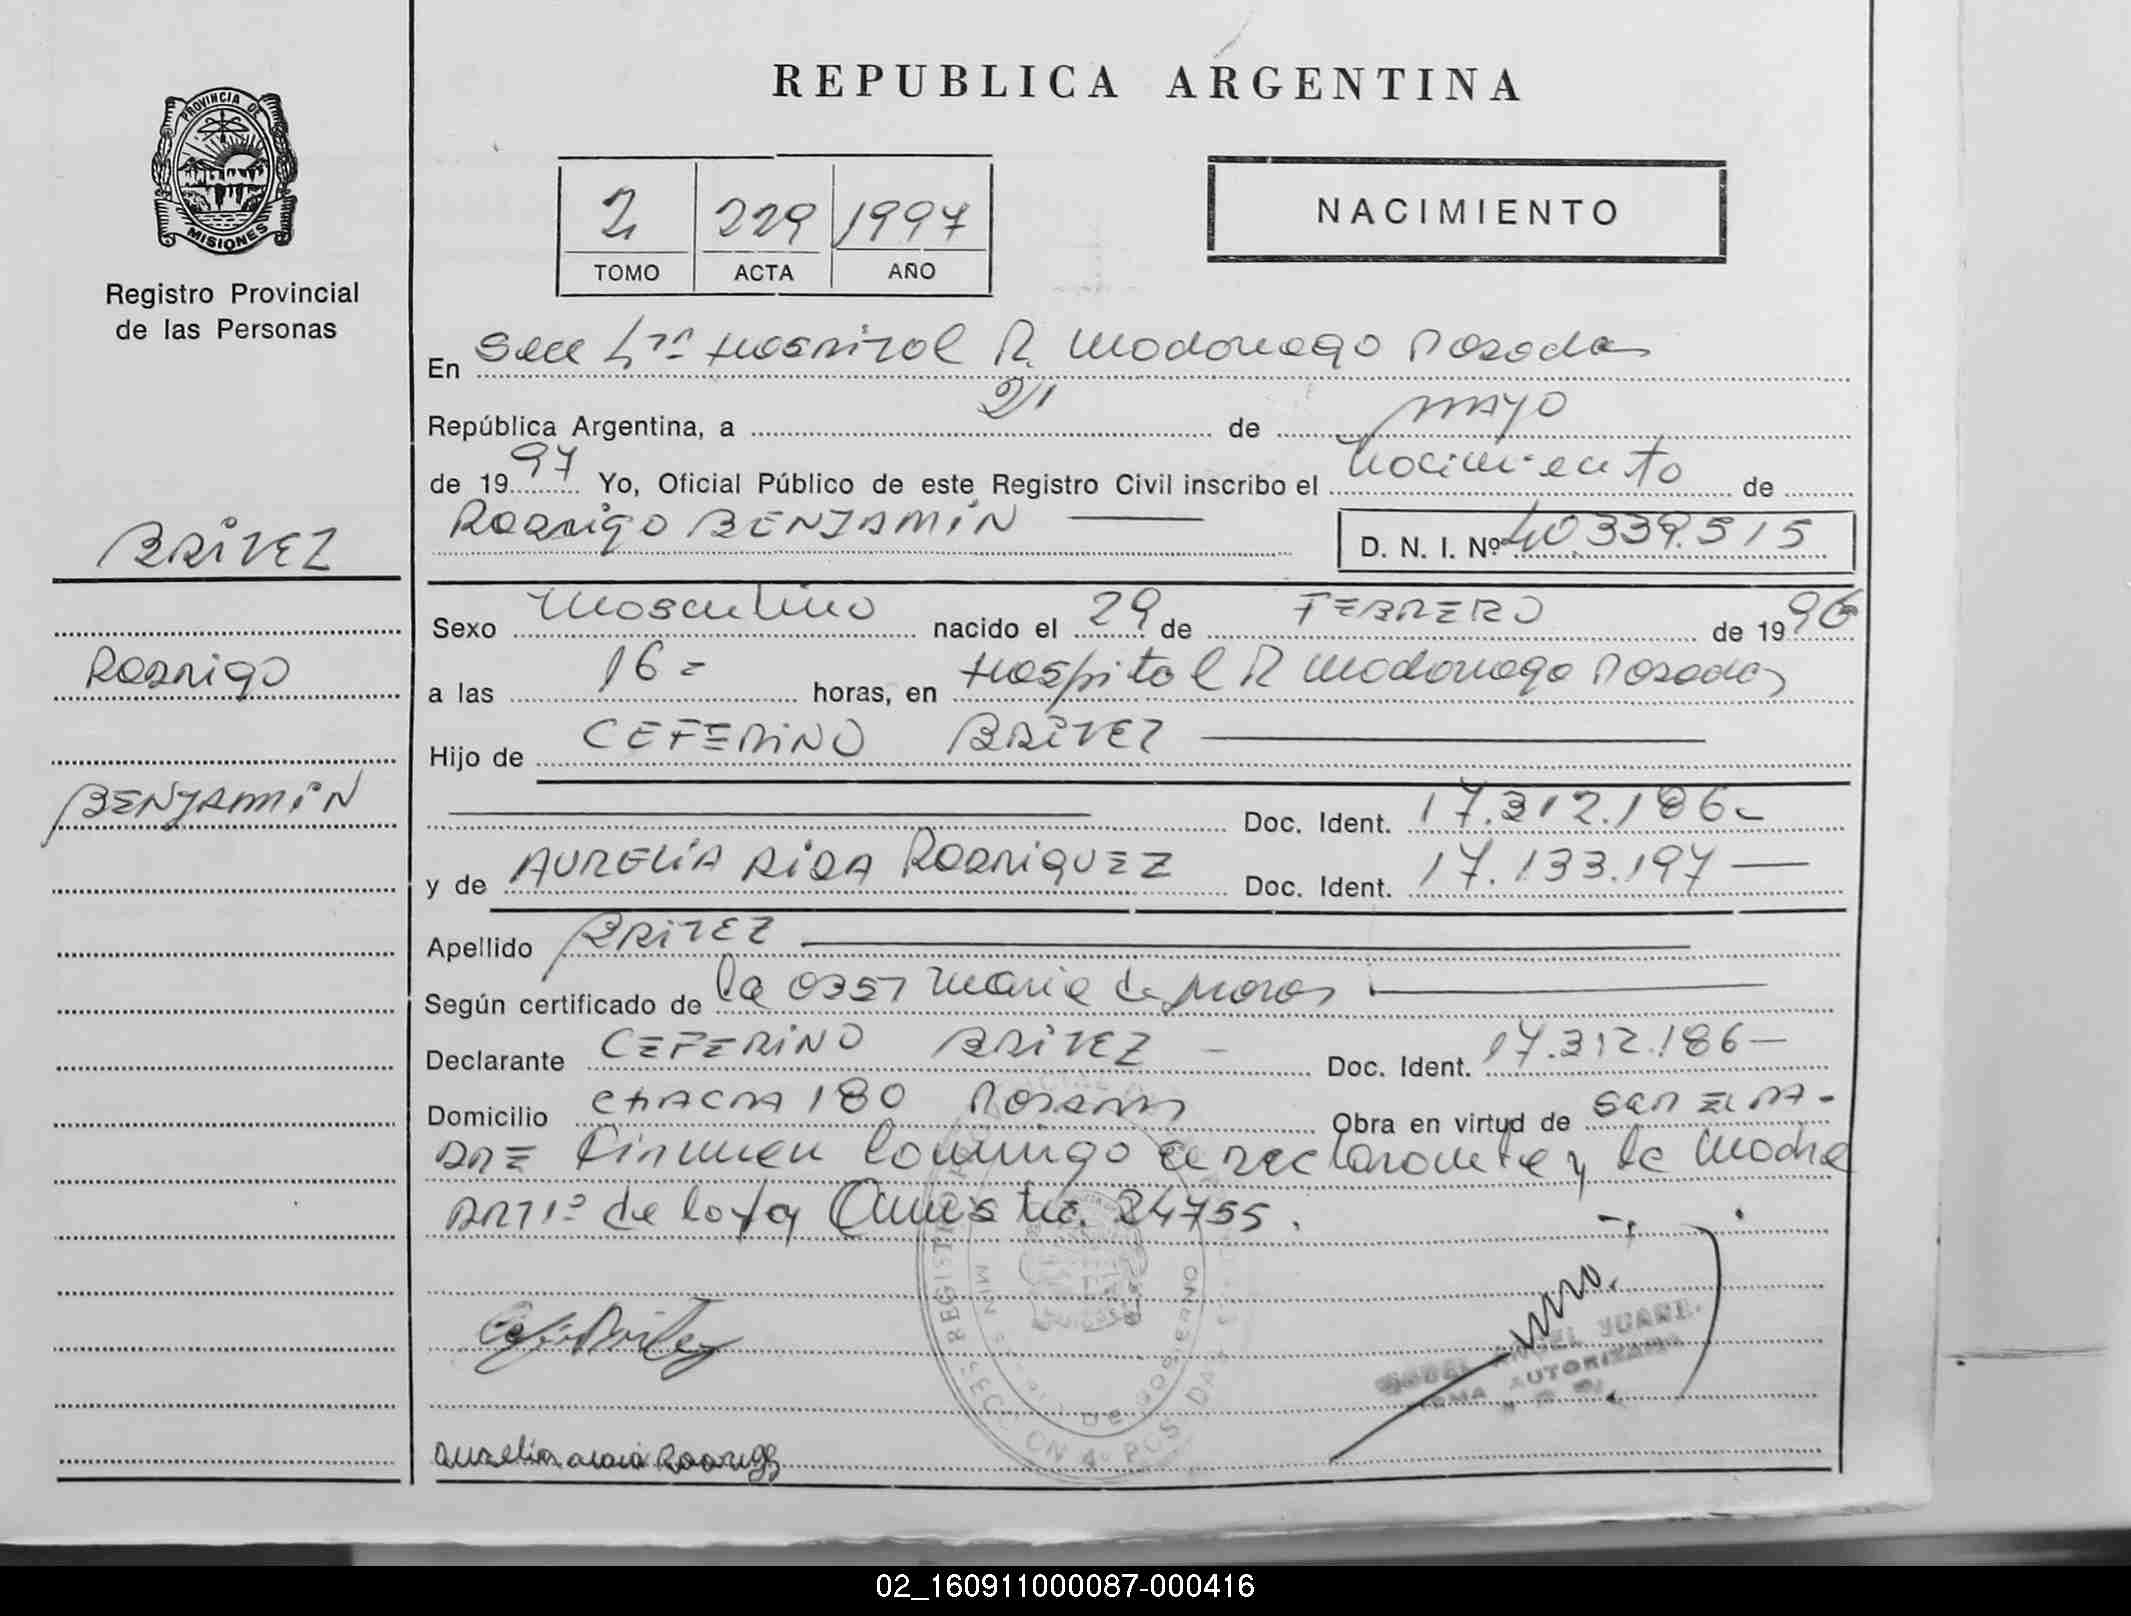 REPUBLICA ARGENTINA
PROVINCIA DE
MISIONES
Registro Provincial
de las Personas
2 229 1997
TOMO ACTA AÑO
NACIMIENTO
En Secc 4ta Hospital R. Madariaga Posadas
República Argentina, a 21 de mayo
de 1997 Yo, Oficial Público de este Registro Civil inscribo el Nacimiento de
RODRIGO BENJAMIN
D. N. I. Nº 40.339.515
BRITEZ
RODRIGO
BENJAMIN
Sexo Masculino nacido el 29 de FEBRERO de 1996
a las 16= horas, en Hospital R Madariaga Posadas
Hijo de CEFERINO BRITEZ
Doc. Ident. 17.312.186-
y de AURELIA RODRIGUEZ Doc. Ident. 17.133.197
Apellido BRITEZ
Según certificado de la Obst Maria de
Declarante CEFERINO BRITEZ - Doc. Ident. 17.312.186-
Domicilio CHACRA 180 POSADAS Obra en virtud de SER EL PA-
DRE Firman conmigo el declarante y la Madre
ART 1º de la Ley 24755.
ANGEL
FIRMA AUTORIZADA
02_160911000087-000416